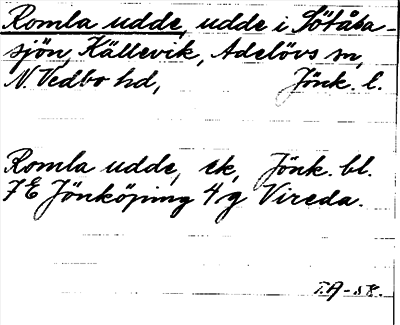 Romla udde, udde i Sötåsa-
sjön, Källevik, Adelövs sn,
N. Vedbo hd, Jönk. l.
Romla udde, ek, Jönk. bl.
7E Jönköping 4g Vireda.